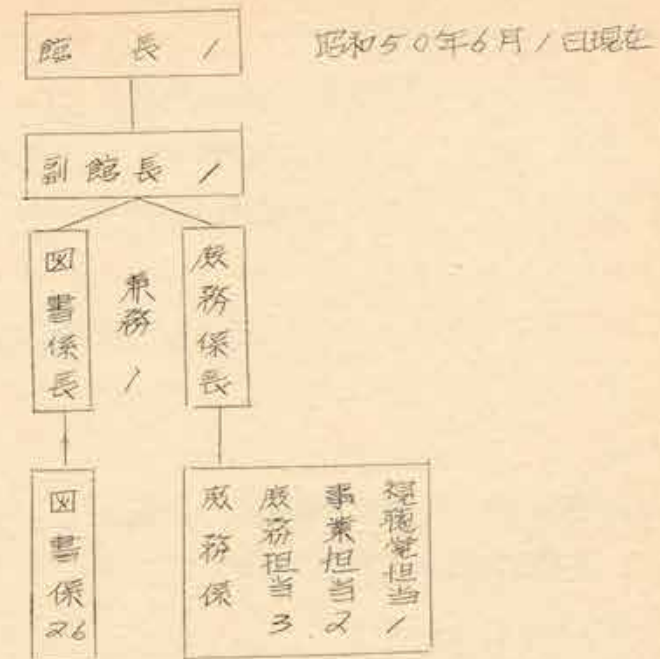 館長 1
昭和50年6月1日現在
副館長 1
図書係長
兼務 1
庶務係長
図書係 26
庶務係
庶務担当 3
事業担当 2
視聴覚担当 1